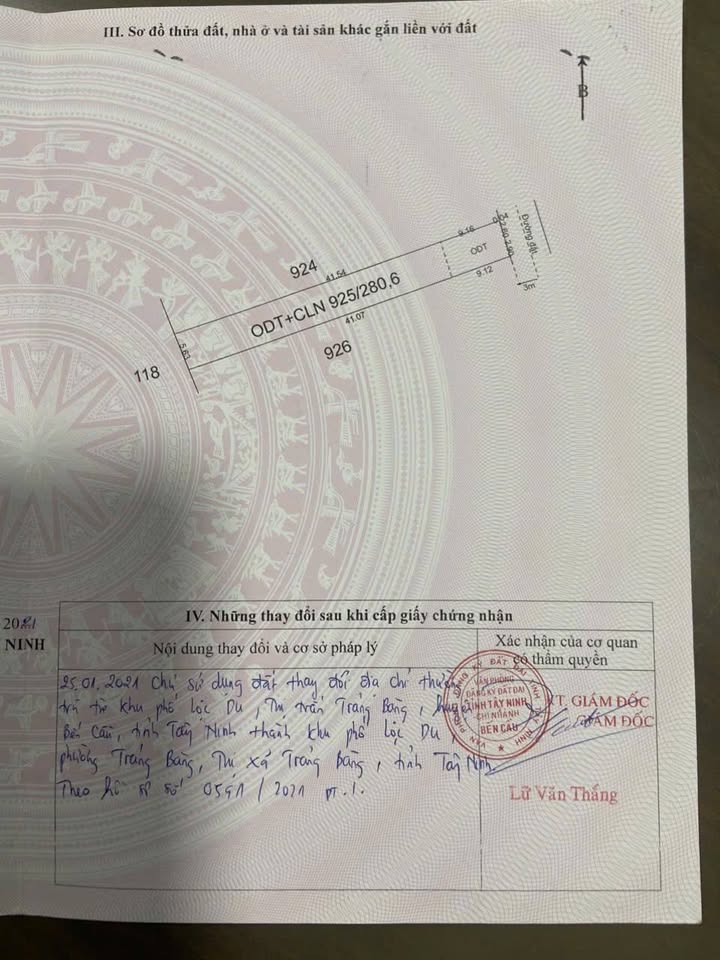 III. Sơ đồ thửa đất, nhà ở và tài sản khác gắn liền với đất
B
924
41.54
9.16
0.04
2.60
2.90
Đường đất
ODT
9.12
3m
ODT+CLN 925/280,6
41.07
5.63
926
118
2021
NINH
IV. Những thay đổi sau khi cấp giấy chứng nhận
Nội dung thay đổi và cơ sở pháp lý
Xác nhận của cơ quan
có thẩm quyền
25.01.2021 Chủ sử dụng đất thay đổi địa chỉ thường
trú từ khu phố Lộc Du, Thị trấn Trảng Bàng, huyện
Bến Cầu, tỉnh Tây Ninh thành khu phố Lộc Du,
phường Trảng Bàng, Thị xã Trảng Bàng, tỉnh Tây Ninh
Theo hồ sơ số 0591/2021
VĂN PHÒNG
ĐĂNG KÝ ĐẤT ĐAI
TỈNH TÂY NINH
CHI NHÁNH
BẾN CẦU
KT. GIÁM ĐỐC
GIÁM ĐỐC
Lữ Văn Thắng